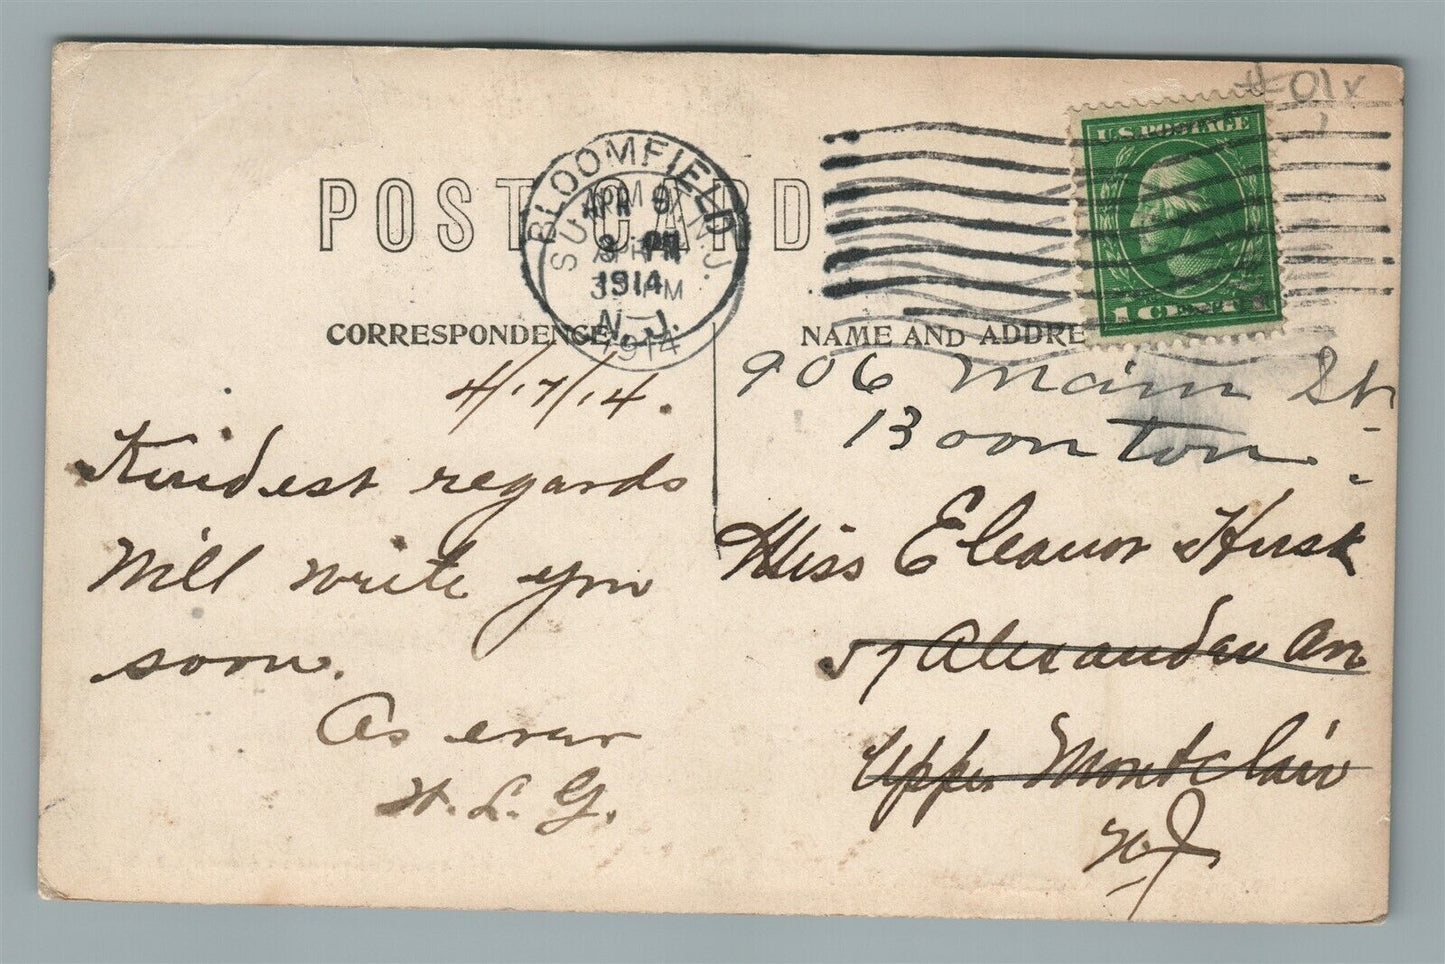 #01x
POST CARD
BLOOMFIELD N.J.
APR 9
3 PM
1914
N. J.
U.S. POSTAGE
1 CENT 1
CORRESPONDENCE
NAME AND ADDRE
4/17/14.
Kindest regards
Will write you
soon.
As ever
H. L. G.
906 Main St.
Boonton
Miss Eleanor Husk
57 Alexander Av
Upper Montclair
N J